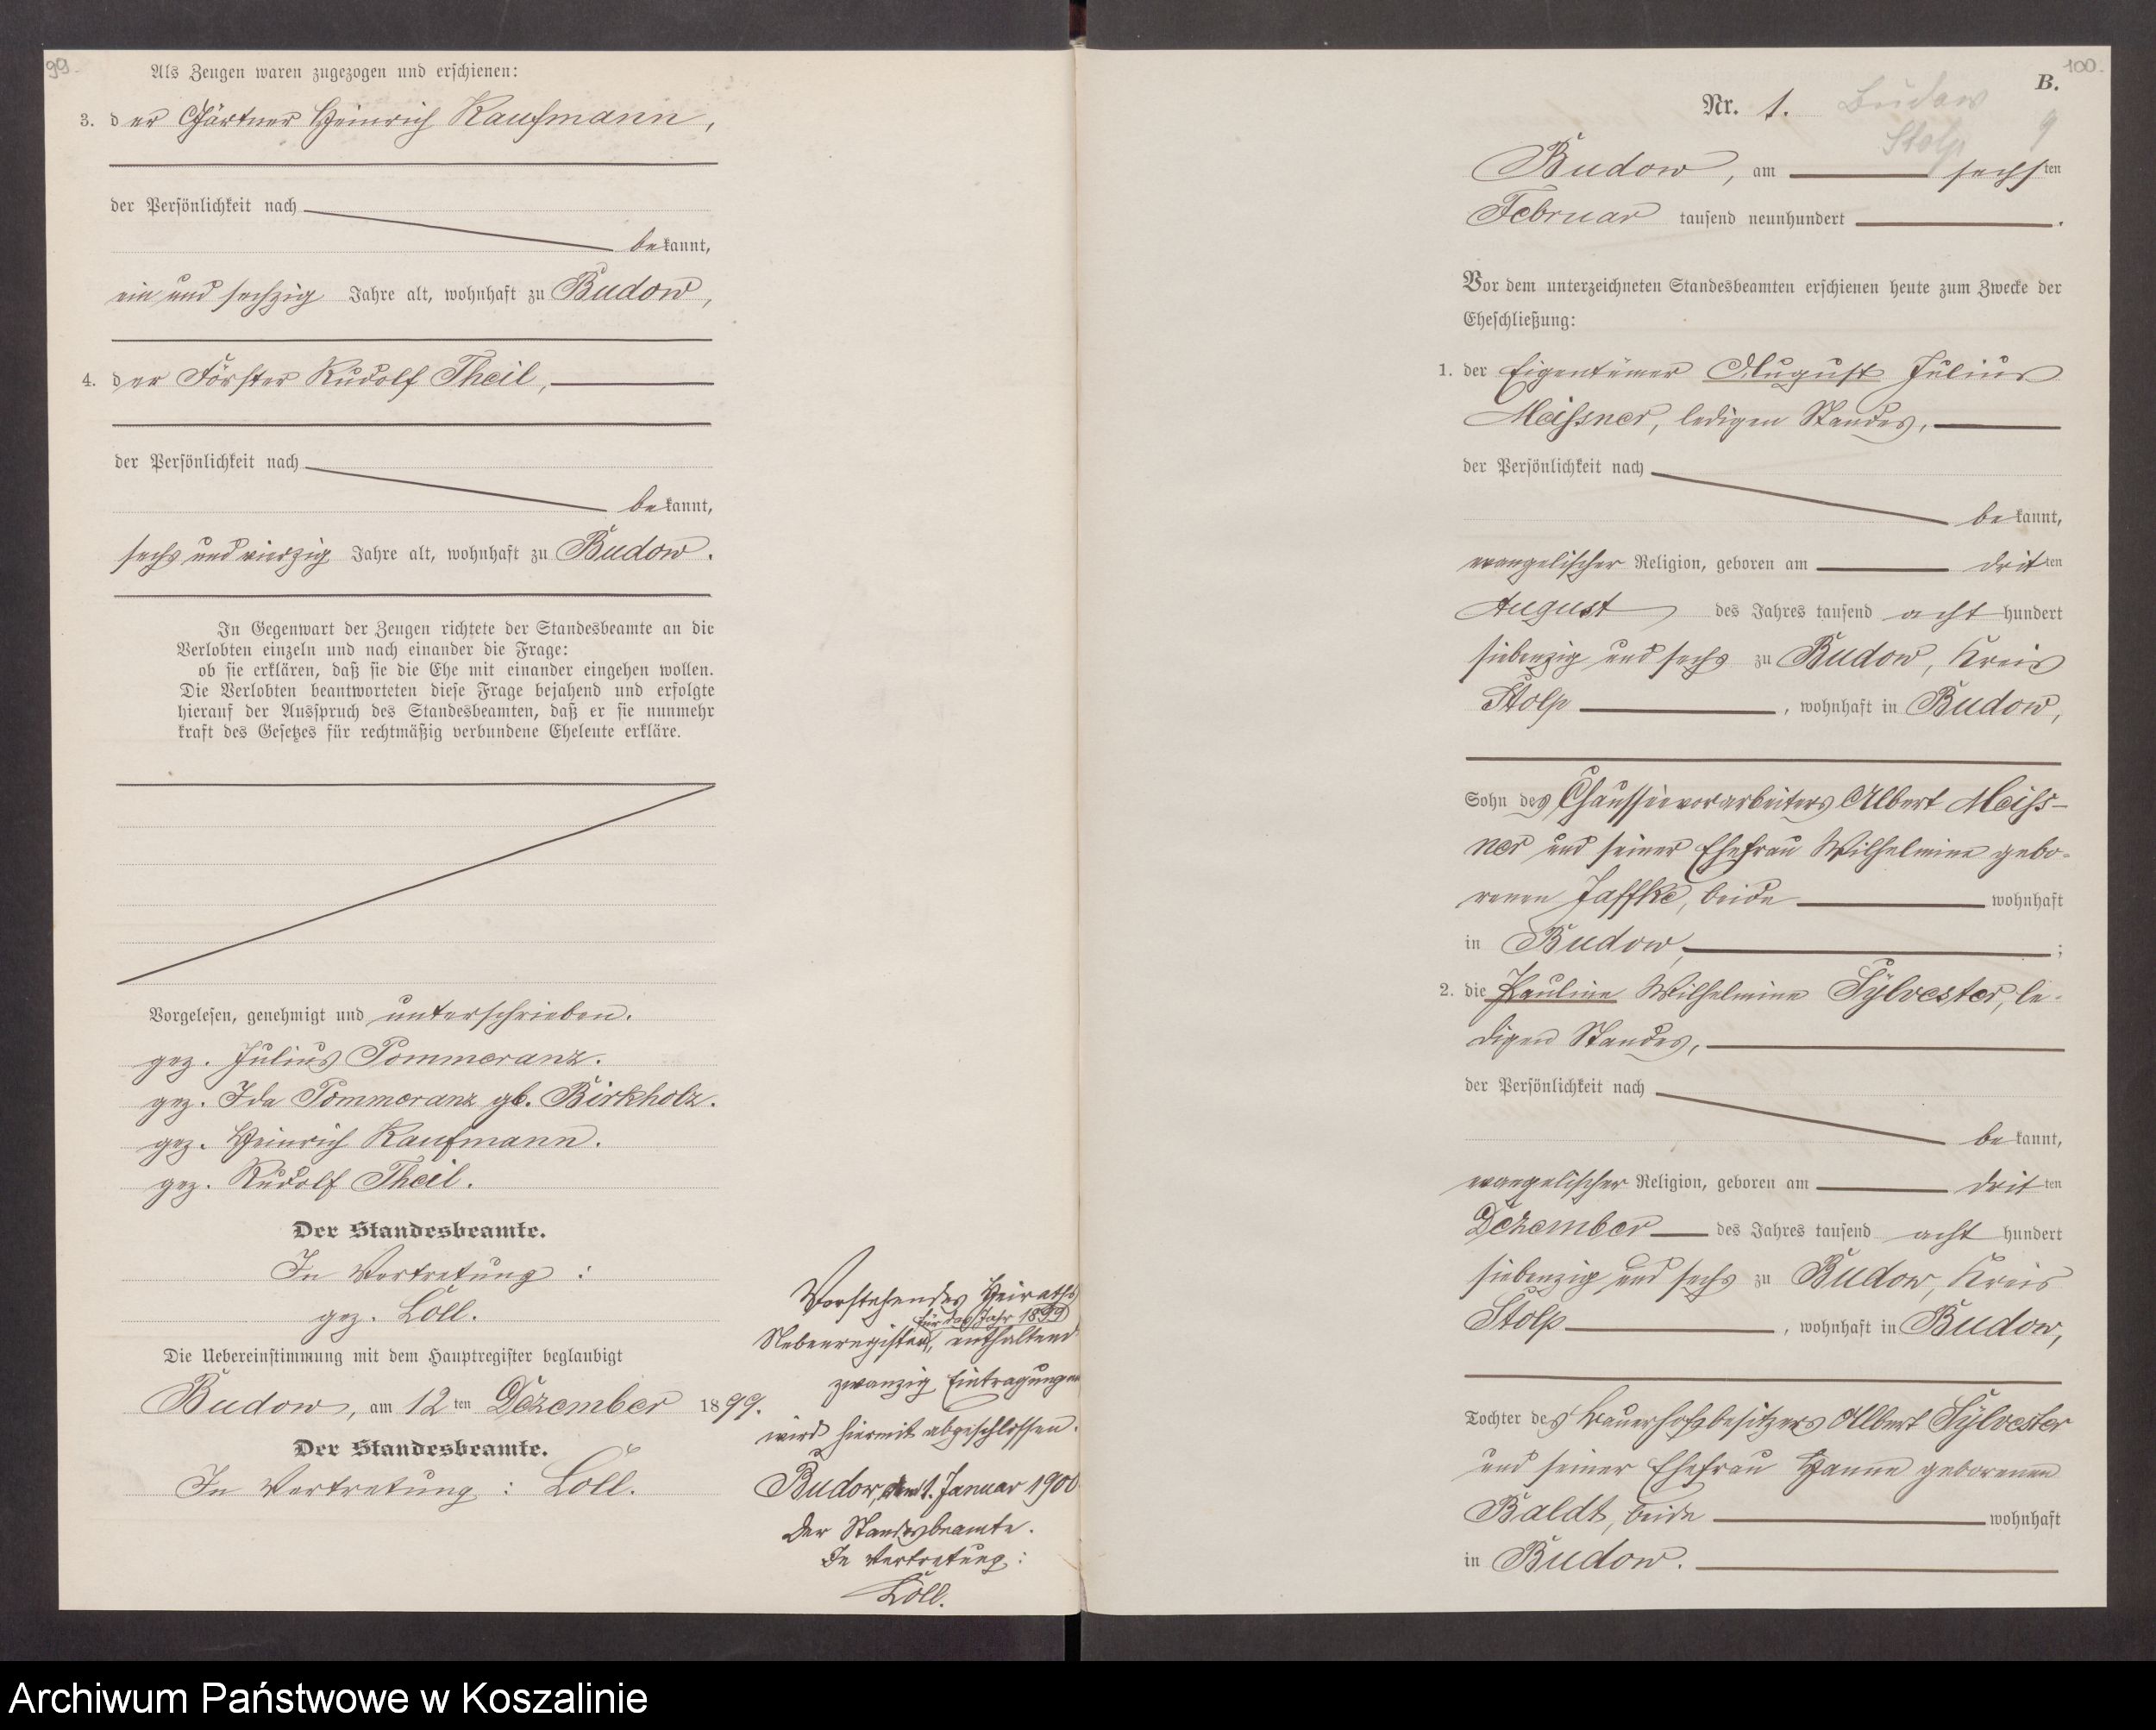 99.
Als Zeugen waren zugezogen und erschienen:
3. der Gärtner Heinrich Kaufmann,
der Persönlichkeit nach
bekannt,
ein und sechzig Jahre alt, wohnhaft zu Budow,
4. der Förster Rudolf Theil,
der Persönlichkeit nach
bekannt,
sechs und vierzig Jahre alt, wohnhaft zu Budow.
In Gegenwart der Zeugen richtete der Standesbeamte an die
Verlobten einzeln und nach einander die Frage:
ob sie erklären, daß sie die Ehe mit einander eingehen wollen.
Die Verlobten beantworteten diese Frage bejahend und erfolgte
hierauf der Ausspruch des Standesbeamten, daß er sie nunmehr
kraft des Gesetzes für rechtmäßig verbundene Eheleute erkläre.
Vorgelesen, genehmigt und unterschrieben.
gez. Julius Pommeranz.
gez. Ida Pommeranz gb. Birkholz.
gez. Heinrich Kaufmann.
gez. Rudolf Theil.
Der Standesbeamte.
In Vertretung:
gez. Löll.
Die Uebereinstimmung mit dem Hauptregister beglaubigt
Budow, am 12ten Dezember 1899.
Der Standesbeamte.
In Vertretung: Löll.
Vorstehendes Heiraths
für das Jahr 1899
Nebenregister, enthaltend
zwanzig Eintragungen
wird hiermit abgeschlossen.
Budow, den 1. Januar 1900.
Der Standesbeamte.
In Vertretung:
Löll.
100.
B.
Nr. 1. Budow
Stolp 9
Budow, am sechsten
Februar tausend neunhundert .
Vor dem unterzeichneten Standesbeamten erschienen heute zum Zwecke der
Eheschließung:
1. der Eigentümer August Julius
Meissner, ledigen Standes,
der Persönlichkeit nach
bekannt,
evangelischer Religion, geboren am dritten
August des Jahres tausend acht hundert
siebenzig und sechs zu Budow, Kreis
Stolp , wohnhaft in Budow,
Sohn des Chausséevorarbeiters Albert Meiss-
ner und seiner Ehefrau Wilhelmine gebo-
renen Jaffke, beide wohnhaft
in Budow, ;
2. die Pauline Wilhelmine Sylvester, le-
digen Standes,
der Persönlichkeit nach
bekannt,
evangelischer Religion, geboren am dritten
Dezember des Jahres tausend acht hundert
siebenzig und sechs zu Budow, Kreis
Stolp , wohnhaft in Budow,
Tochter des Bauerhofsbesitzers Albert Sylvester
und seiner Ehefrau Hanne geborenen
Baldt, beide wohnhaft
in Budow.
Archiwum Państwowe w Koszalinie